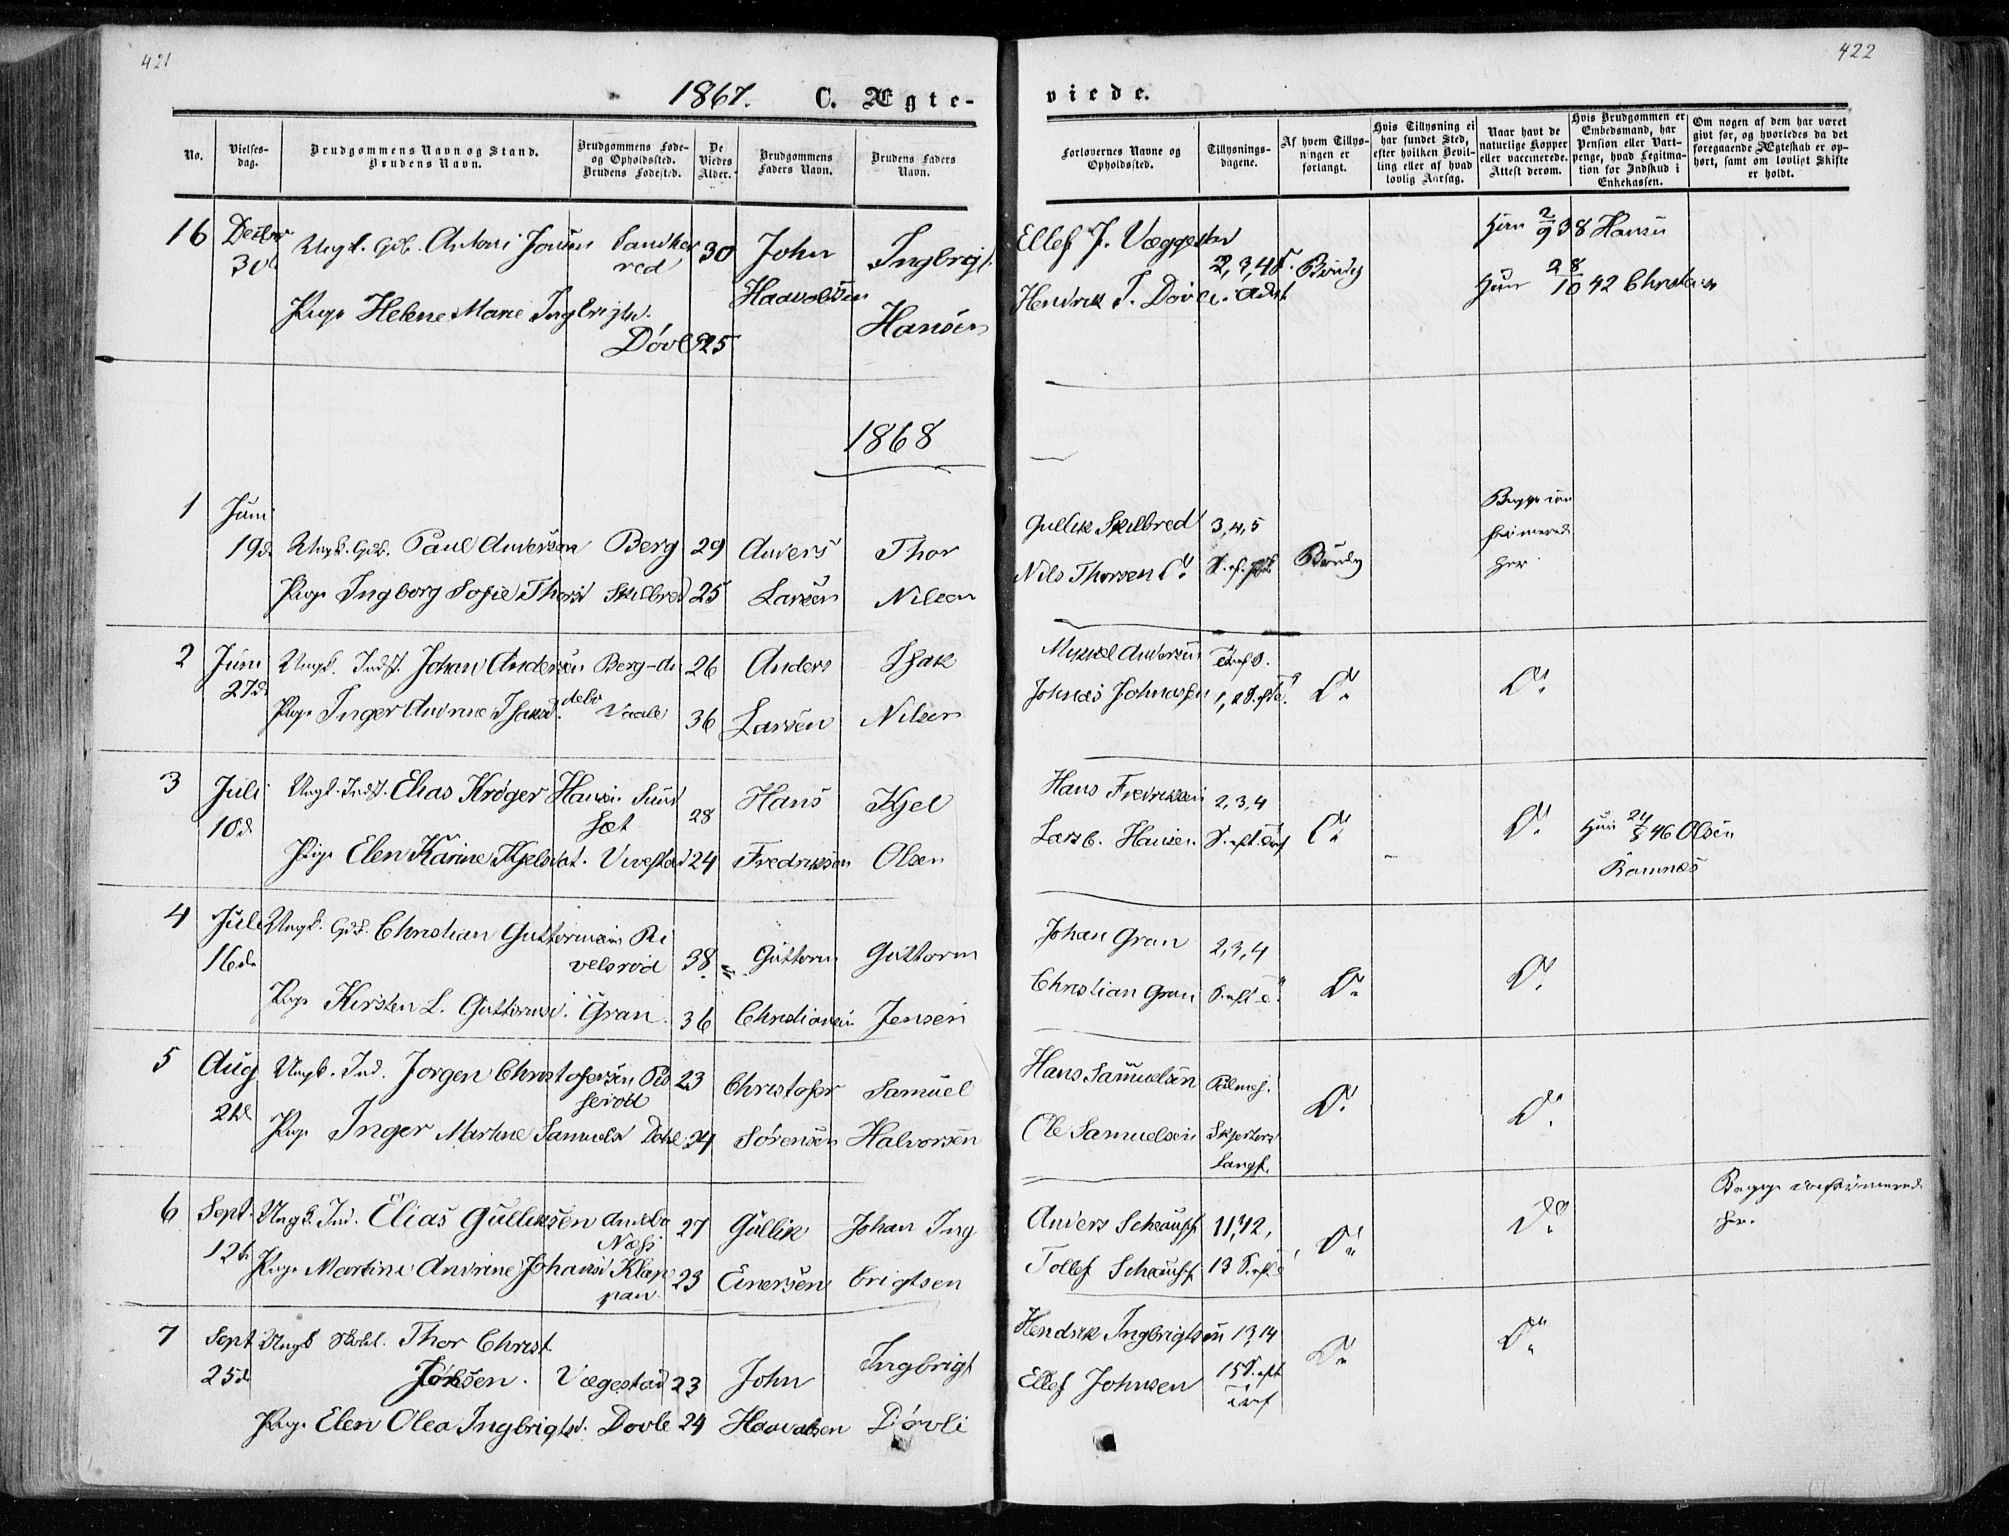 421
1867. C. Ægte-
No.
Vielses-
dag.
Brudgommens Navn og Stand.
Brudens Navn.
Brudgommens Føde-
og Opholdssted.
Brudens Fødested.
De
Viedes
Alder.
Brudgommens
Faders Navn.
Brudens Faders
Navn.
16 Decbr 30
Ungk. Anton
30 John
Haavolsen
Ingbrigt
Pige Helene Marie Ingbrigtsd.
Døvle 25
Hansen
1868
1 Juni
19d Ungk. Gdb. Paul Andersen Berg 29 Anders Thor
Pige Ingborg Sofie Thorsd Skilbred 25 Larsen Nilsen
2 Juni Ungk. Indst. Johan Andersen Berg-de 26 Anders Isak
27d Pige Inger Andrine Isaksd. Vaale 36 Larsen Nilsen
3 Juli Ungk. Indst. Elias Krøger Hansen 28 Hans Kjel
10d
Pige Elen Karine Kjelsdat. Vivestad 24 Fredriksen Olsen
4 Juli Ungk. Gdb. Christian Guttormsen Ri
16d velsrød 38 Guttorm Guttorm
Pige Kirsten L. Guttormsd. Gran 36 Christiansen Jensen
5 Aug Ungk. Ind. Jørgen Christofersen 23 Christofer Samuel
21d
Pige Inger Martine Samuelsd 24 Sørensen Halvorsen
6 Sept. Ungk. Ind. Elias Gulliksen 27 Gullik Johan Ing
12te Næs
Pige Martine Andrine Johansd Klop
pan 23 Einersen brigtsen
7 Sept Ungk Thor Christ
25d Johsen. Vægestad 23 John Ingbrigt
Pige Elen Olea Ingbrigtsd. Dovle 24 Haavalsen Døvli
422
viede.
Forlovernes Navne og
Opholdssted.
Tillysnings-
dagene.
Af hvem Tillys-
ningen er
forlangt.
Hvis Tillysning ei
har fundet Sted,
efter hvilken Bevil-
ling eller af hvad
lovlig Aarsag.
Naar havt de
naturlige Kopper
eller vaccinerede.
Attest derom.
Hvis Brudgommen er
Embedsmand, har
Pension eller Vart-
penge, hvad Legitima-
tion for Indskud i
Enkekassen.
Om nogen af dem har været
givt før, og hvorledes da det
foregaaende Ægteskab er op-
hørt, samt om lovligt Skifte
er holdt.
Ellef J. Væggestad
Han 2/9 38 Hansen
Hendrik I. Døvle
2, 3, 4 S. Advt
Hun 28/10 42 Christensen
Gullik Skilbred 3, 4, 5
Begge
her
Nils Thorsen Do
Mikkel Andersen
Johnas Johnasen Do Do
Hans Fredriksen 2, 3, 4
Lars C. Hansen Do Do Hun 24/8 46 Olsen
Ramnæs
Johan Gran 2, 3, 4
Christian Gran Do Do
Hans Samuelsen Palmes.
Do Do
Ole Samuelsen Skjertors
Langf.
Begge
her.
Anders Schauff 11, 12, Do Do
Tollef Schauff 13
Hendrik Ingbrigtsen 13, 14 Do Do
Ellef Johnsen 15